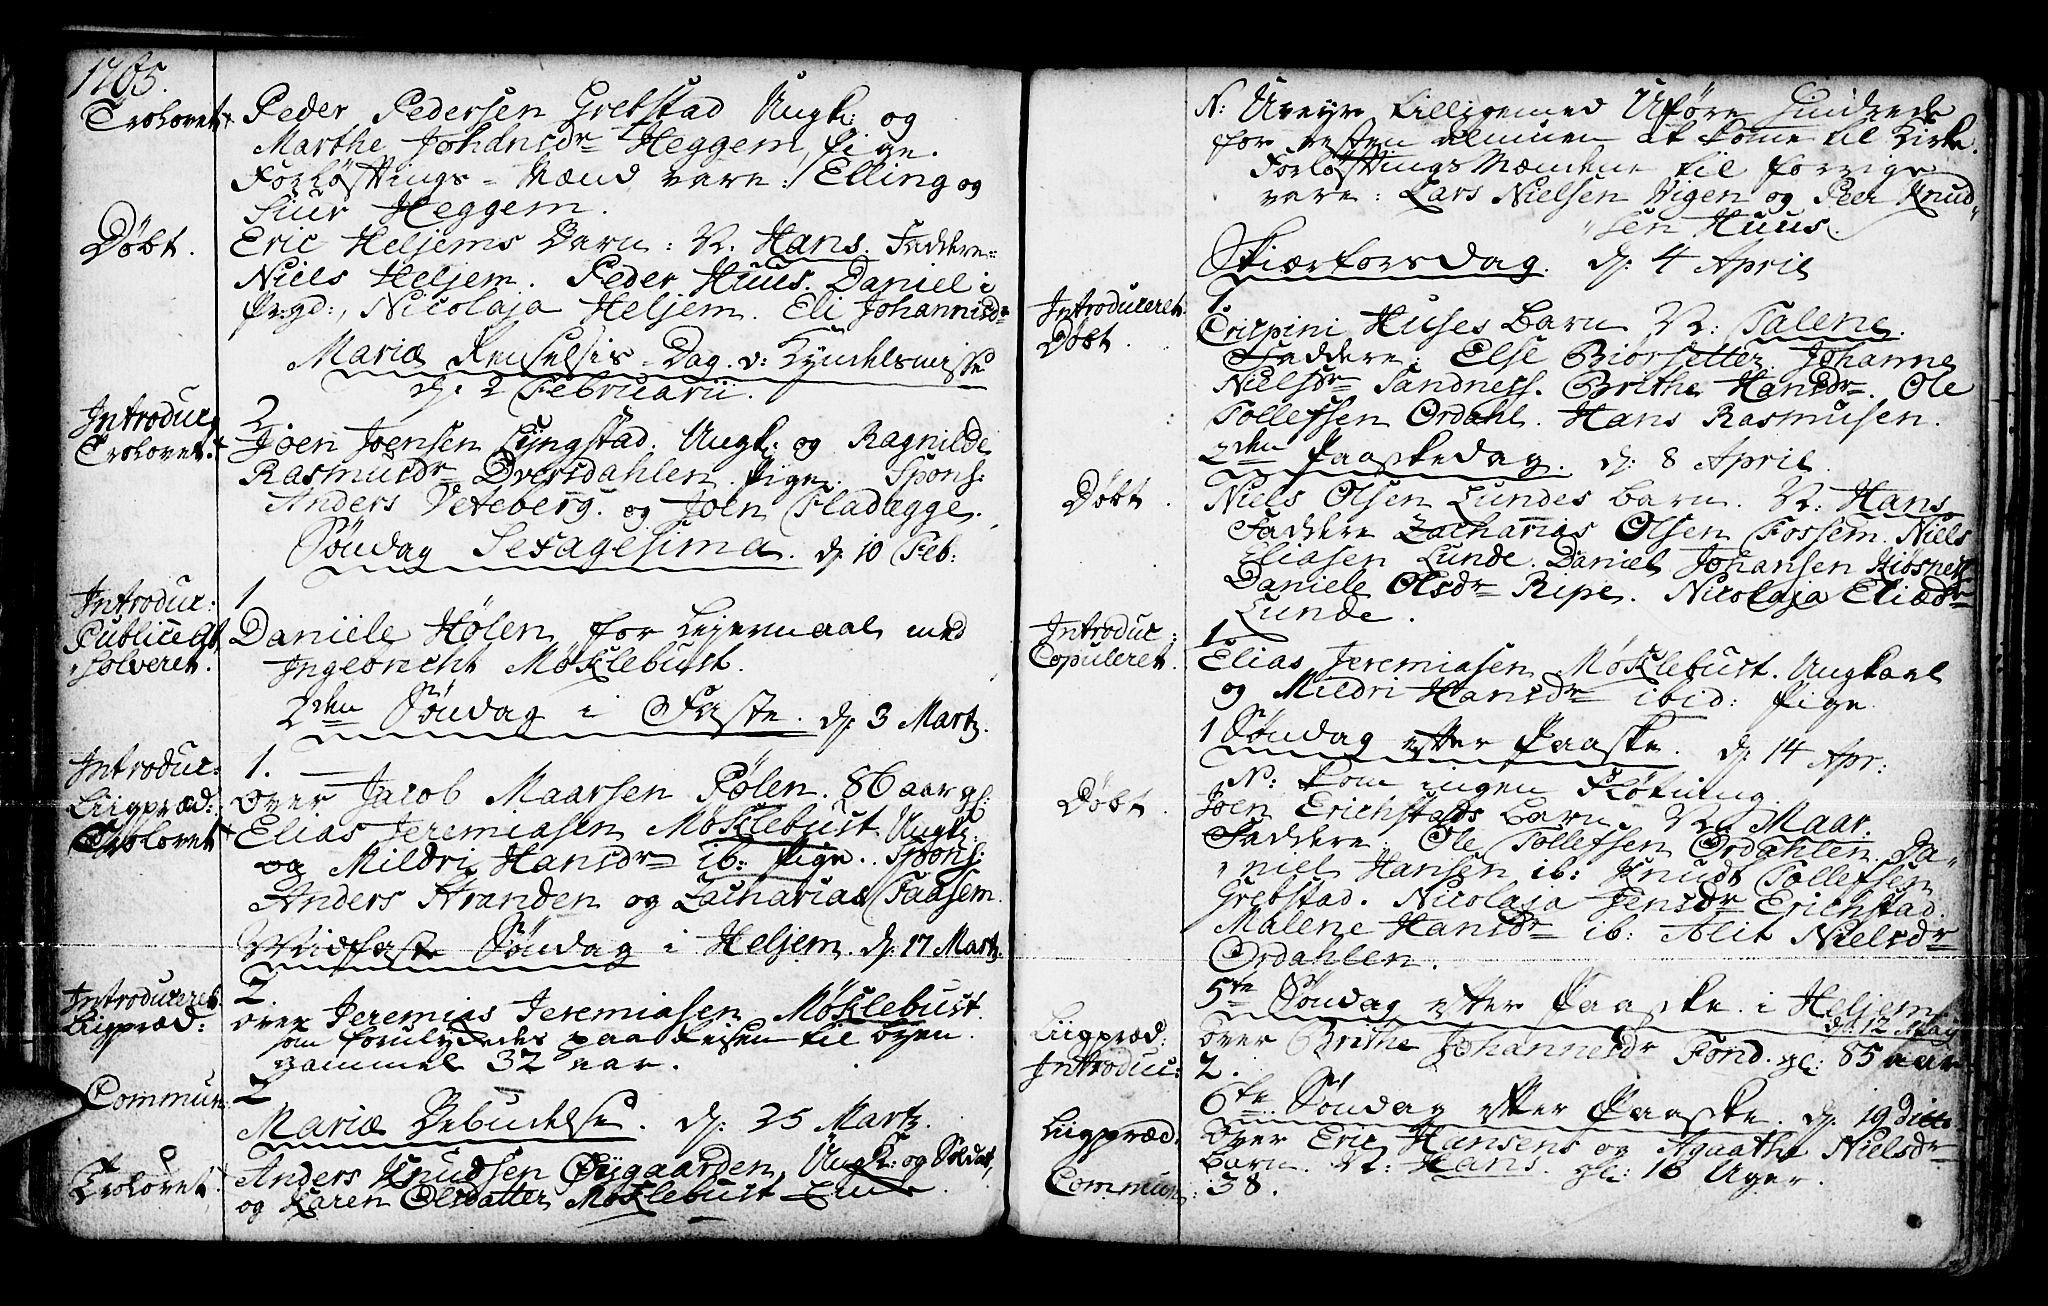 1765.
Trolovet. Peder Pedersen Grebstad Ungk: og
Marthe Johansdr Heggem, pige.
Forløftnings-Mænd vare: Elling og
Siur Heggem.
Døbt. Eric Heljems Barn: N. Hans. Faddere:
Niels Heljem. Peder Huus. Daniel i
Pr:gd:, Nicolaja Heljem. Eli Johannisdr
Mariæ Renselsis-Dag v: Kyndelsmisse
d: 2 Februarii.
Introduc: 2.
Trolovet. Joen Joensen Lyngstad. Ungk: og Ragnilde
Rasmusdr Dversdahlen. Pige. Spons:
Anders Veteberg. og Joen Fladægge.
Søndag Sexagesima. d: 10 Feb:
Introduc: 1
Publice Absolveret. Daniele Hølen for Lejermaal med
Ingebrecht Møklebust.
2den Søndag i Faste. d: 3 Martz.
Introduc: 1.
Liigpræd: over Jacob Maarsen Pølen. 86 aar gl:
Trolovet Elias Jeremiasen Møklebust. Ungk:
og Mildri Hansdr ib: Pige. Spons:
Anders Stranden og Zacharias Faasem.
Midfaste Søndag i Heljem. d: 17 Martz.
Introduceret. 2.
Liigpræd: over Jeremias Jeremiasen Møklebust.
som forulykkedes paa Reisen til Byen.
gammel 32 aar.
Commun: 2
Mariæ Bebudelse. d: 25 Martz.
Trolovet. Anders Knudsen Øygaarden, Ungk: og Soldat,
og Karen Olsdatter Møklebust
N: Uveyr tilligemed Uføre hindrede
for resten almuen at komme til Kirke.
Forløftnings Mændene til forrige
vare: Lars Nielsen Vigen og Peer Knud-
sen Huus.
Skiærtorsdag. d: 4 April
Introduceret. 1.
Døbt. Crispini Huses Barn N: Talene.
Faddere: Else Biorsetter, Johanne
Nielsdr Sandness. Brithe Hansdr. Ole
Tollefsen Ordahl. Hans Rasmusen.
2den Paaskedag. d: 8 April.
Døbt. Niels Olsen Lundes Barn. N: Hans
Faddere Zacharias Olsen Fossem. Niels
Eliasen Lunde. Daniel Johansen
Daniele Olsdr Ripe. Nicolaja Eliædr
Lunde.
Introduc: 1.
Copuleret. Elias Jeremiasen Møklebust. Ungkarl
og Mildri Hansdr ibid: Pige.
1 Søndag efter Paaske. d: 14 Apr:
N: kom ingen Fløtning
Døbt. Joen Erichstads Barn. N. Maar.
Faddere. Ole Tollefsen Ordahlen. Da-
niel Hansen ib: Knudt Tollefsen
Grebstad. Nicolaja Jensdr Erichstad.
Malene Hansdr ib: Alit Nielsdr
Ordahlen.
5te Søndag efter Paaske. i Heljem
d: 12 Maij
Liigpræd: over Brithe Johannesdr Fond. gl: 85 aar
Introduc: 2.
6te Søndag efter Paaske. d: 19 Ditto
Liigpræd. over Eric Hansens og Agaathe Nielsdr
Barn. N: Hans. gl: 16 Uger.
Commun: 38.